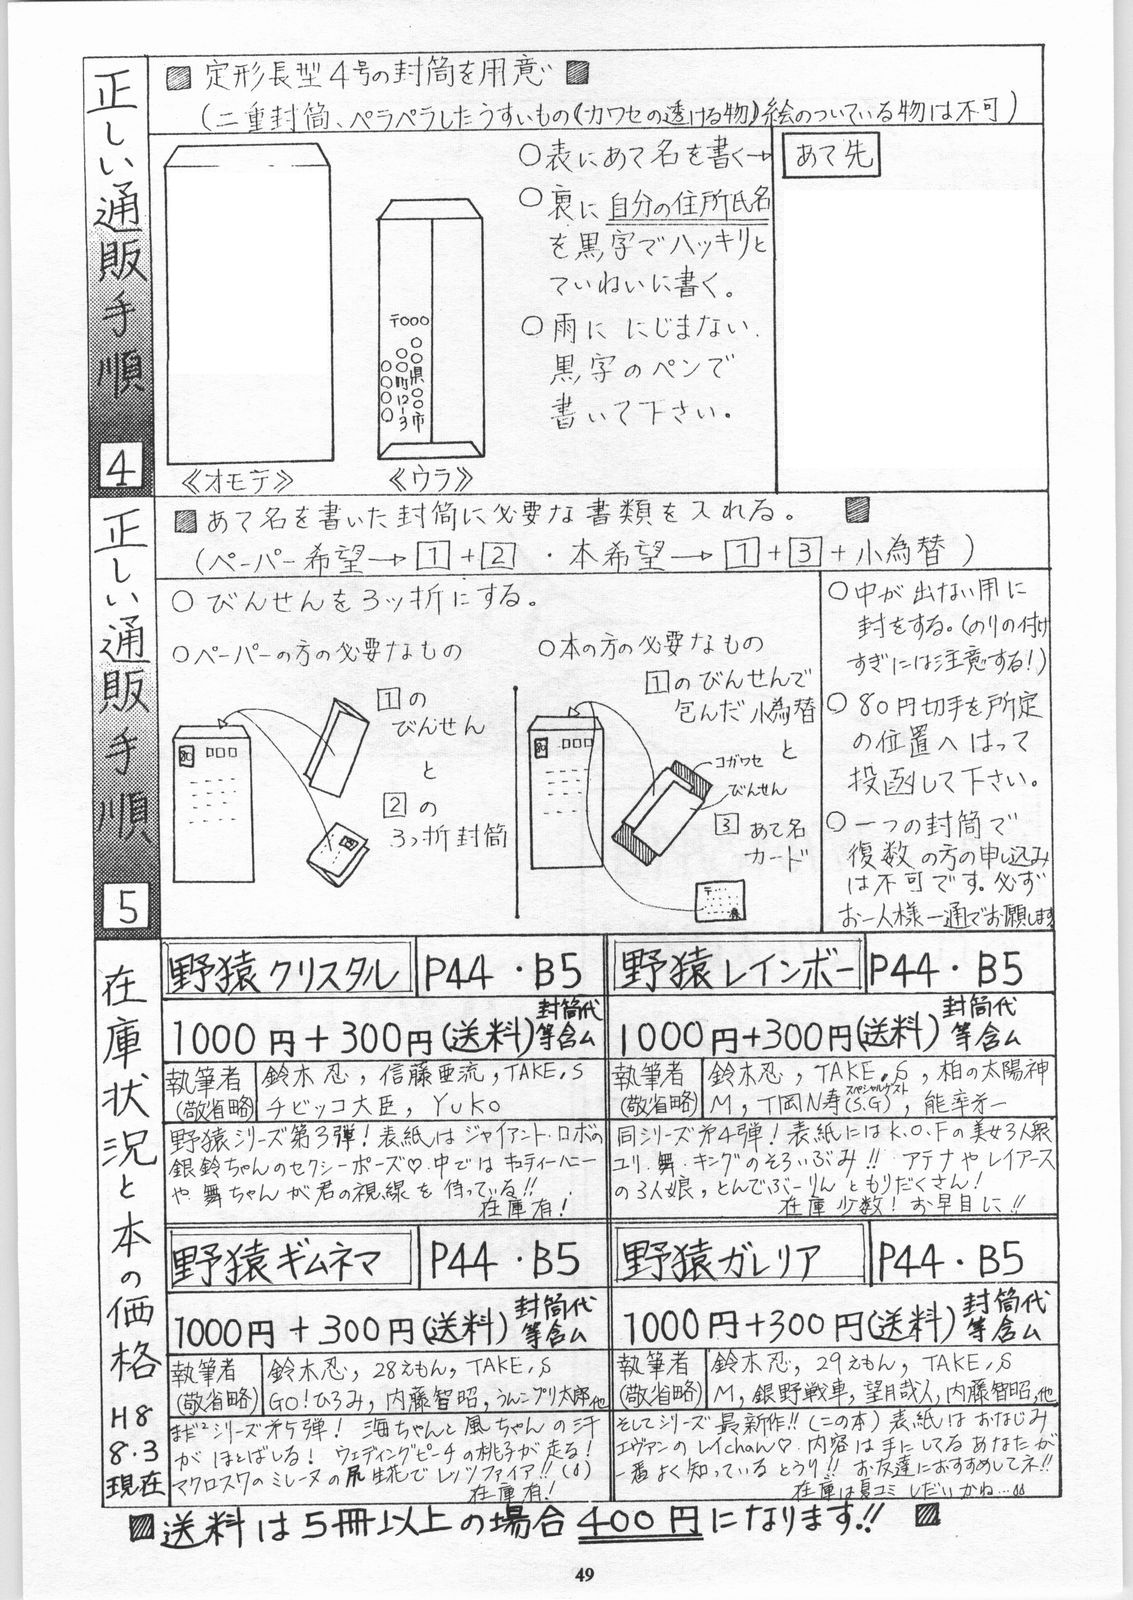 正しい通販手順 4
■ 定形長型4号の封筒を用意 ■
(二重封筒、ペラペラしたうすいもの《カワセの透ける物》絵のついている物は不可)
〒000
○○県○○市
○○町12-3
○○○○
《オモテ》
《ウラ》
○表にあて名を書く→
○裏に自分の住所氏名
を黒字でハッキリと
ていねいに書く。
○雨ににじまない
黒字のペンで
書いて下さい。
あて先
正しい通販手順 5
■あて名を書いた封筒に必要な書類を入れる。 ■
(ペーパー希望→1+2・本希望→1+3+小為替)
○びんせんを3ッ折にする。
○ペーパーの方の必要なもの
1の
びんせん
と
2の
3っ折封筒
80
○本の方の必要なもの
1のびんせんで
包んだ小為替
と
コガワセ
びんせん
3あて名
カード
80
〒
○中が出ない用に
封をする。(のりの付け
すぎには注意する!)
○80円切手を所定
の位置へはって
投函して下さい。
○一つの封筒で
復数の方の申し込み
は不可です。必ず
お一人様一通でお願します
在庫状況と本の価格
H8
8.3
現在
野猿クリスタル P44・B5
1000円+300円(送料)封筒代等含ム
執筆者(敬省略)
鈴木忍,信藤亜流,TAKE.S
チビッコ大臣,Yuko
野猿シリーズ第3弾!表紙はジャイアント・ロボの
銀鈴ちゃんのセクシーポーズ♡.中ではキューティーハニー
や舞ちゃんが君の視線を待っている!!
在庫有!
野猿レインボー P44・B5
1000円+300円(送料)封筒代等含ム
執筆者(敬省略)
鈴木忍,TAKE.S,柏の太陽神
M,T岡N寿(スペシャルゲスト S.G),能率才一
同シリーズ才4弾!表紙にはK.O.Fの美女3人衆
ユリ.舞.キングのそろいぶみ!!アテナやレイアース
の3人娘,とんでぶーりんともりだくさん!
在庫少数!お早目に!!
野猿ギムネマ P44・B5
1000円+300円(送料)封筒代等含ム
執筆者(敬省略)
鈴木忍,28えもん,TAKE.S
GO!ひろみ,内藤智昭,うんこブリ太郎,他
まだ²シリーズ才5弾!海ちゃんと風ちゃんの汗
がほとばしる!ウェディングピーチの桃子が走る!
マクロス7のミレーヌの尻生花でレッツファイア!!(δ)
在庫有!
野猿ガレリア P44・B5
1000円+300円(送料)封筒代等含ム
執筆者(敬省略)
鈴木忍,29えもん,TAKE.S
M,銀野戦車,望月哉人,内藤智昭,他
そしてシリーズ最新作!!(この本)表紙はおなじみ
エヴァンのレイchan♡.内容は手にしてるあなたが
一番よく知っているとうり!!お友達におすすめしてネ!!
在庫は夏コミしだいかね…
■送料は5冊以上の場合400円になります!! ■
49